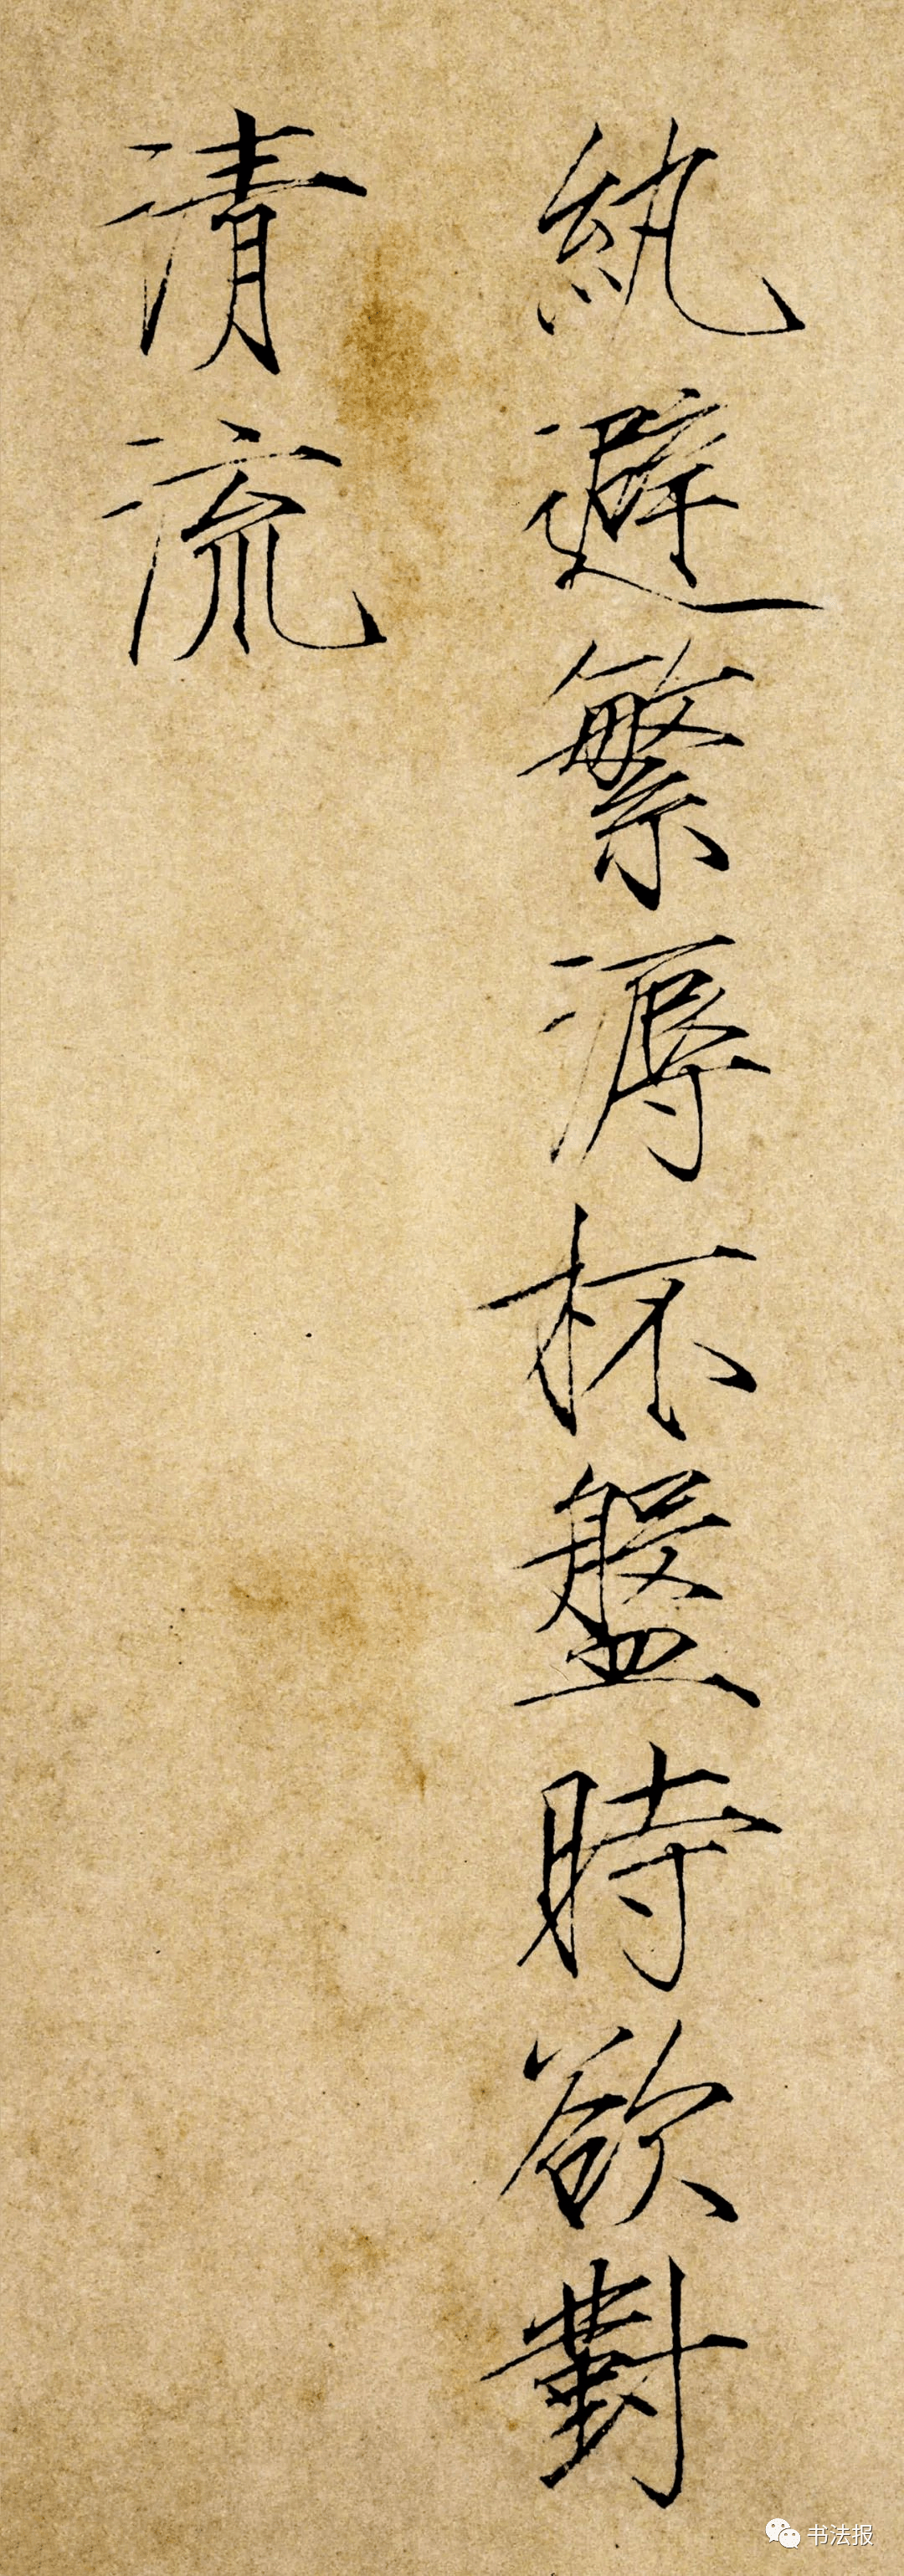 紈避繁溽杯盤時欲對
清流
书法报